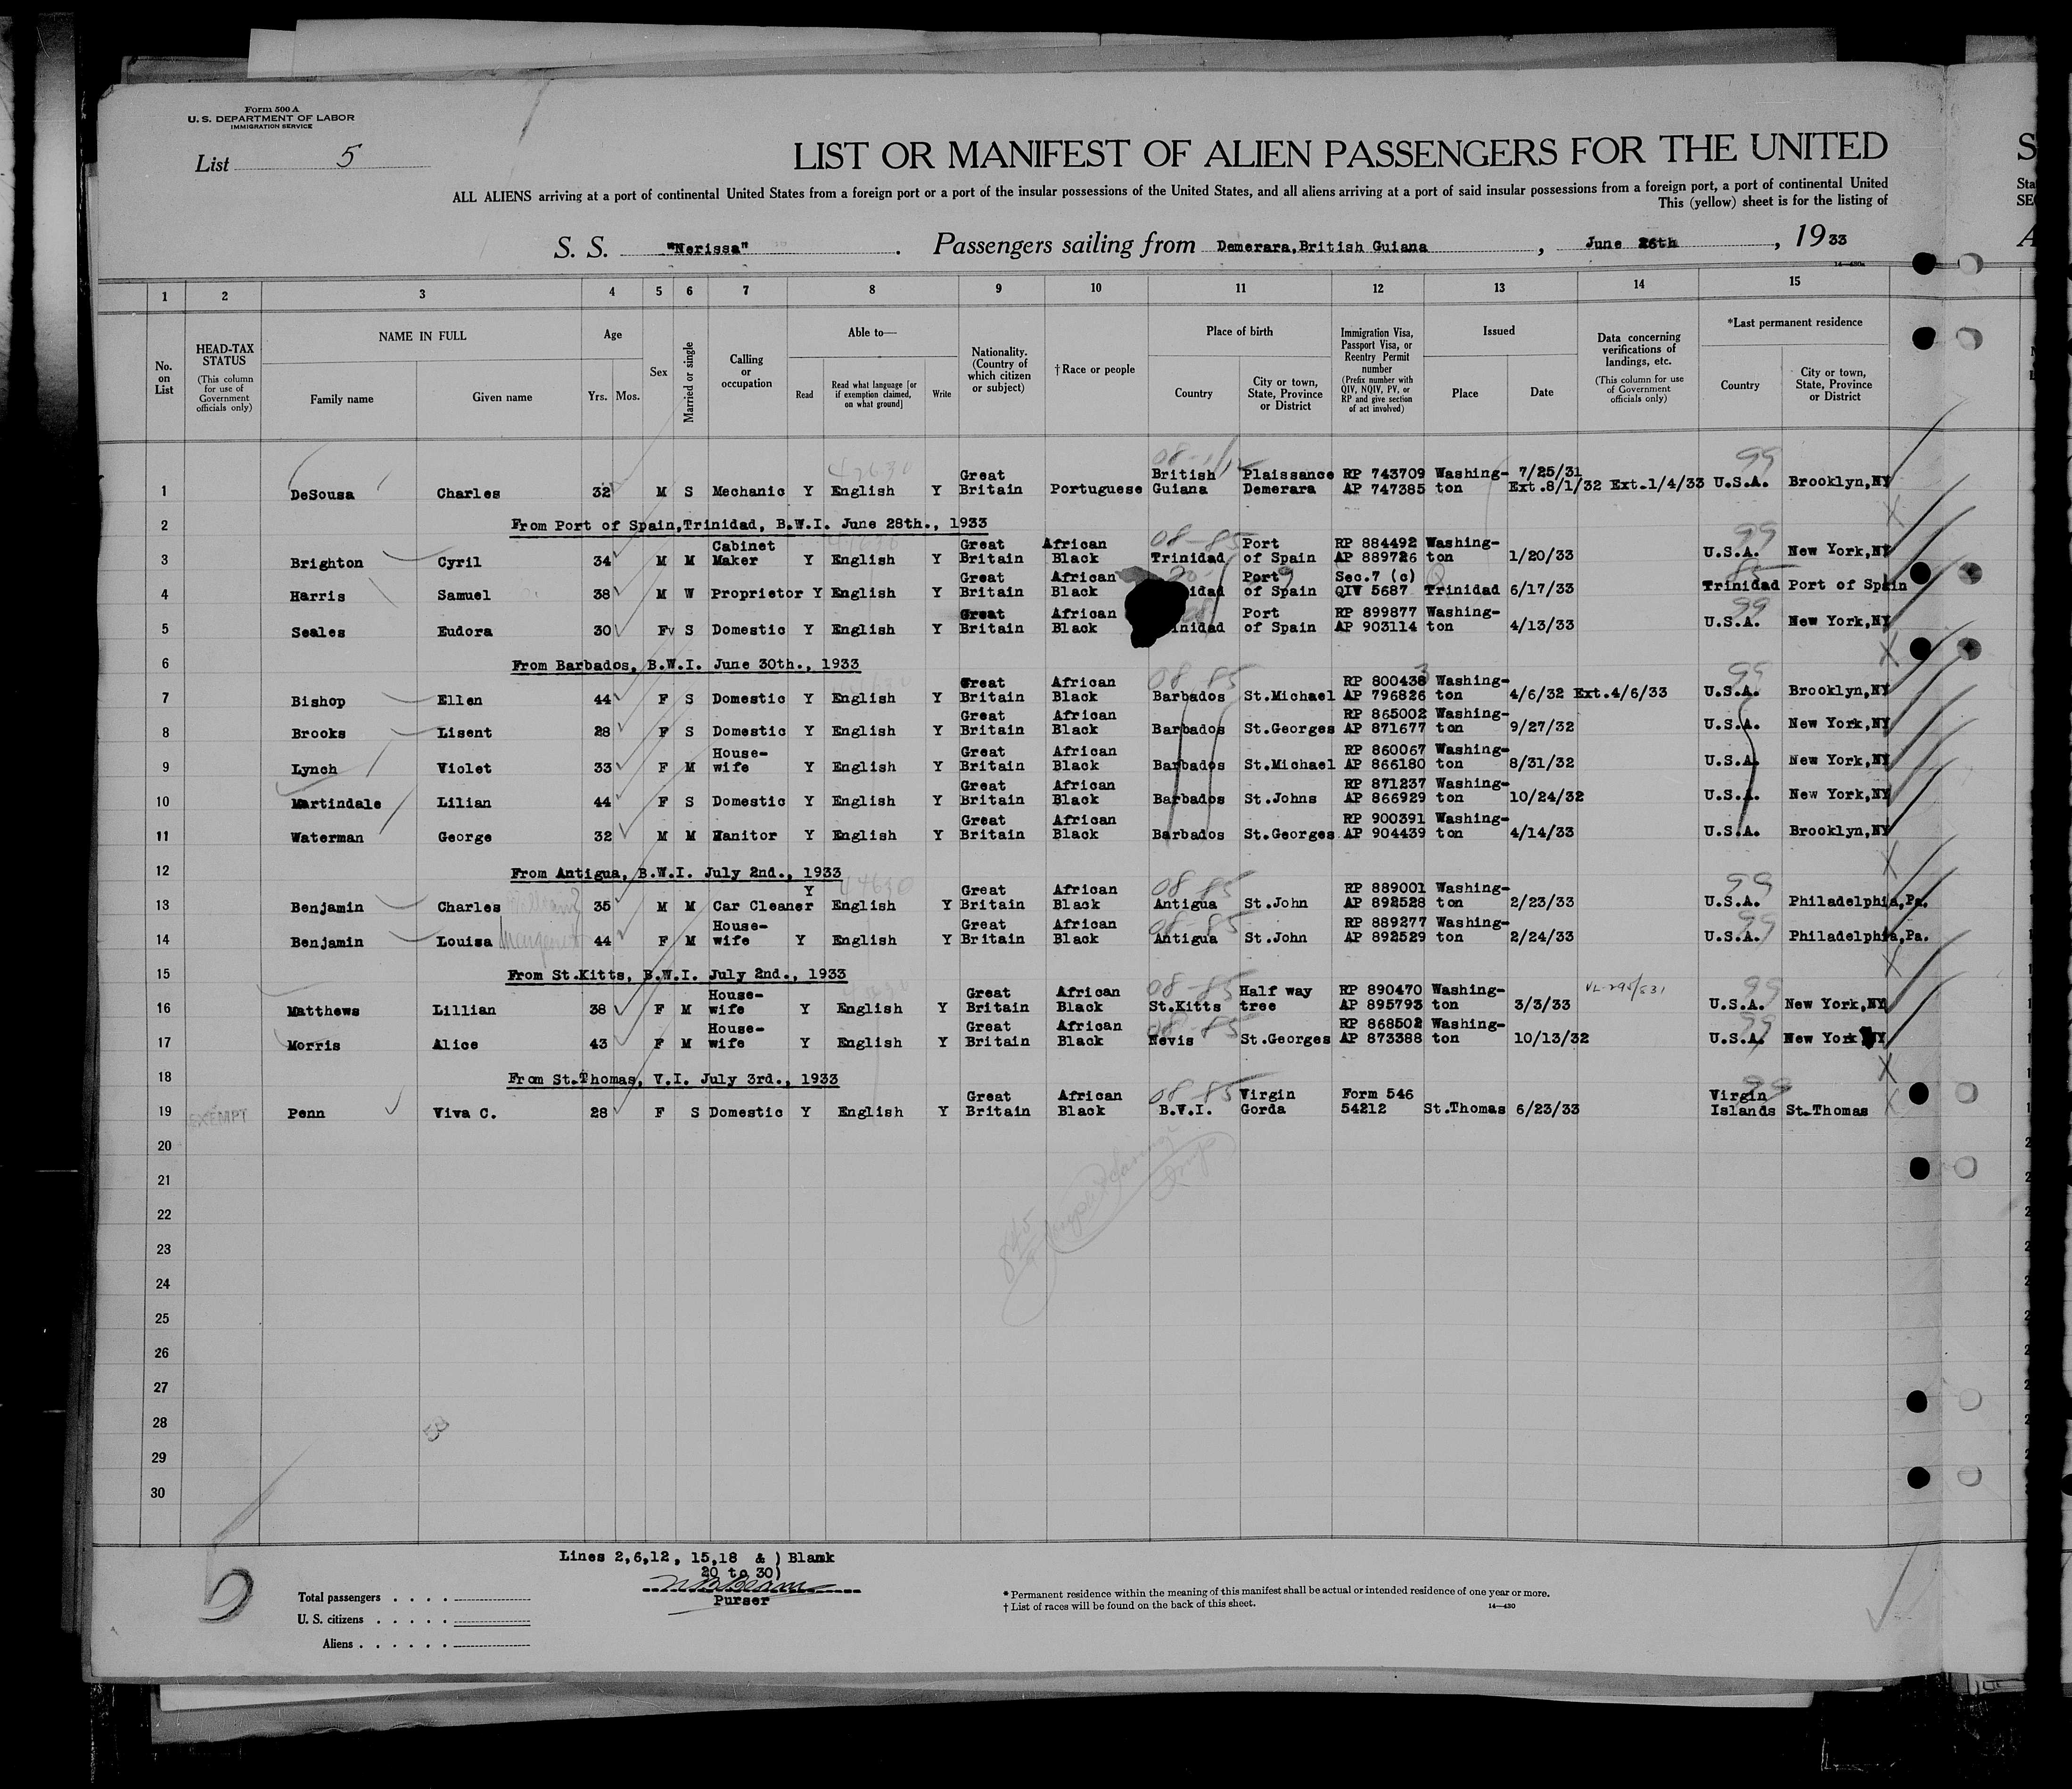 Form 500 A
U. S. DEPARTMENT OF LABOR
IMMIGRATION SERVICE
List 5
LIST OR MANIFEST OF ALIEN PASSENGERS FOR THE UNITED
ALL ALIENS arriving at a port of continental United States from a foreign port or a port of the insular possessions of the United States, and all aliens arriving at a port of said insular possessions from a foreign port, a port of continental United
This (yellow) sheet is for the listing of
S. S. "Nerissa". Passengers sailing from Demerara,British Guiana, June 26th, 1933
14-430
1 2 3 4 5 6 7 8 9 10 11 12 13 14 15
No. on List
HEAD-TAX STATUS (This column for use of Government officials only)
NAME IN FULL Family name Given name
Age Yrs. Mos.
Sex
Married or single
Calling or occupation
Able to— Read Read what language [or if exemption claimed, on what ground] Write
Nationality. (Country of which citizen or subject)
†Race or people
Place of birth Country City or town, State, Province or District
Immigration Visa, Passport Visa, or Reentry Permit number (Prefix number with QIV, NQIV, PV, or RP and give section of act involved)
Issued Place Date
Data concerning verifications of landings, etc. (This column for use of Government officials only)
*Last permanent residence Country City or town, State, Province or District
1 DeSousa Charles 32 M S Mechanic Y English Y Great Britain Portuguese British Guiana Plaissance Demerara RP 743709 AP 747385 Washington 7/25/31 Ext.8/1/32 Ext.1/4/33 U.S.A. Brooklyn,NY
2 From Port of Spain,Trinidad, B.W.I. June 28th., 1933
3 Brighton Cyril 34 M M Cabinet Maker Y English Y Great Britain African Black Trinidad Port of Spain RP 884492 AP 889726 Washington 1/20/33 U.S.A. New York,NY
4 Harris Samuel 38 M W Proprietor Y English Y Great Britain African Black idad Port of Spain Sec.7 (c) QIV 5687 Trinidad 6/17/33 Trinidad Port of Spain
5 Seales Eudora 30 F S Domestic Y English Y Great Britain African Black inidad Port of Spain RP 899877 AP 903114 Washington 4/13/33 U.S.A. New York,NY
6 From Barbados, B.W.I. June 30th., 1933
7 Bishop Ellen 44 F S Domestic Y English Y Great Britain African Black Barbados St.Michael RP 800438 AP 796826 Washington 4/6/32 Ext.4/6/33 U.S.A. Brooklyn,NY
8 Brooks Lisent 28 F S Domestic Y English Y Great Britain African Black Barbados St.Georges RP 865002 AP 871677 Washington 9/27/32 U.S.A. New York,NY
9 Lynch Violet 33 F M House-wife Y English Y Great Britain African Black Barbados St.Michael RP 860067 AP 866180 Washington 8/31/32 U.S.A. New York,NY
10 Martindale Lilian 44 F S Domestic Y English Y Great Britain African Black Barbados St.Johns RP 871237 AP 866929 Washington 10/24/32 U.S.A. New York,NY
11 Waterman George 32 M M Hanitor Y English Y Great Britain African Black Barbados St.Georges RP 900391 AP 904439 Washington 4/14/33 U.S.A. Brooklyn,NY
12 From Antigua, B.W.I. July 2nd., 1933
13 Benjamin Charles 35 M M Car Cleaner Y English Y Great Britain African Black Antigua St.John RP 889001 AP 892528 Washington 2/23/33 U.S.A. Philadelphia,Pa.
14 Benjamin Louisa Margaret 44 F M House-wife Y English Y Great Britain African Black Antigua St.John RP 889277 AP 892529 Washington 2/24/33 U.S.A. Philadelphia,Pa.
15 From St.Kitts, B.W.I. July 2nd., 1933
16 Matthews Lillian 38 F M House-wife Y English Y Great Britain African Black St.Kitts Half way tree RP 890470 AP 895793 Washington 3/3/33 U.S.A. New York,NY
17 Morris Alice 43 F M House-wife Y English Y Great Britain African Black Nevis St.Georges RP 868502 AP 873388 Washington 10/13/32 U.S.A. New York NY
18 From St.Thomas, V.I. July 3rd., 1933
19 EXEMPT Penn Viva C. 28 F S Domestic Y English Y Great Britain African Black B.V.I. Virgin Gorda Form 546 54212 St.Thomas 6/23/33 Virgin Islands St.Thomas
20
21
22
23
24
25
26
27
28
29
30
Lines 2,6,12, 15,18 & ) Blank
20 to 30)
Purser
Total passengers
U. S. citizens
Aliens
* Permanent residence within the meaning of this manifest shall be actual or intended residence of one year or more.
† List of races will be found on the back of this sheet.
14-430